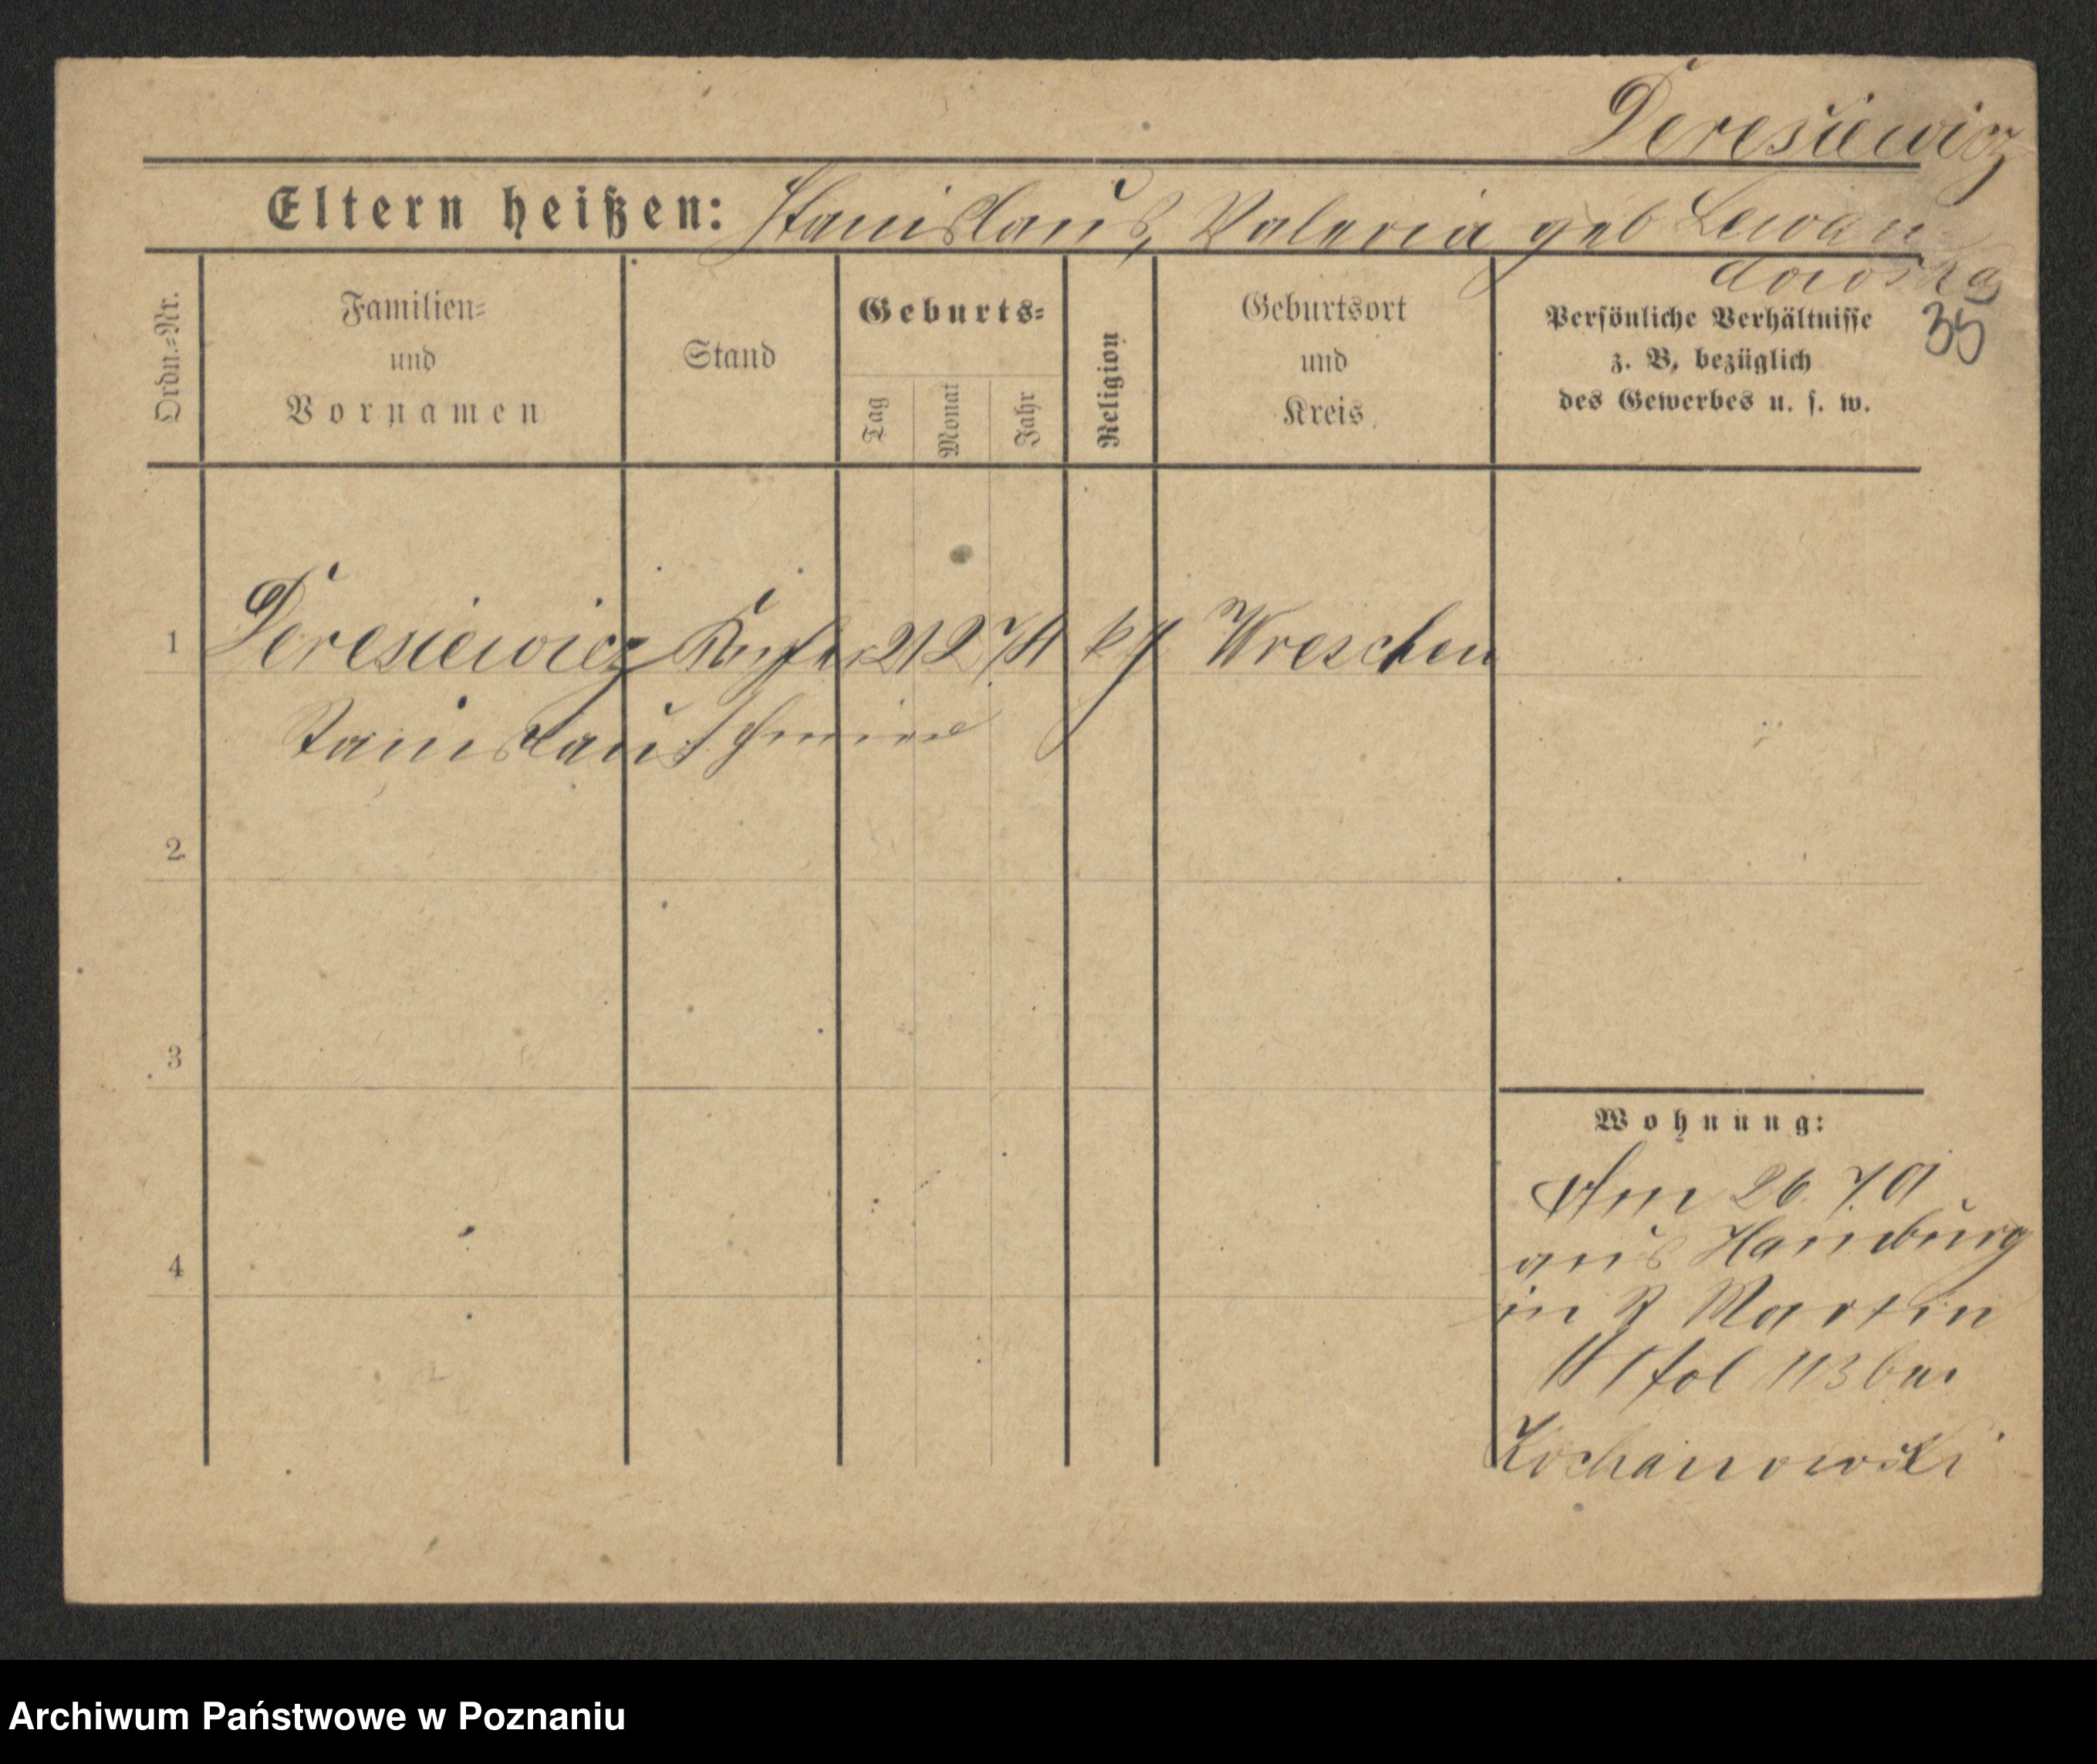 Deresiewicz
Eltern heißen: Stanislaus, Valeria geb Lewan=
dowska
35
Ordn.=Nr.
Familien=
und
Vornamen
Stand
Geburts=
Tag
Monat
Jahr
Religion
Geburtsort
und
Kreis
Persönliche Verhältnisse
z. B. bezüglich
des Gewerbes u. s. w.
1 Deresiewicz Kupfer 21 2 kg Wreschen
Stanislaus schmied
2
3
4
Wohnung:
Am 26.7.01
aus Hamburg
in S Martin
fol 113 bei
Kochanowski
Archiwum Państwowe w Poznaniu